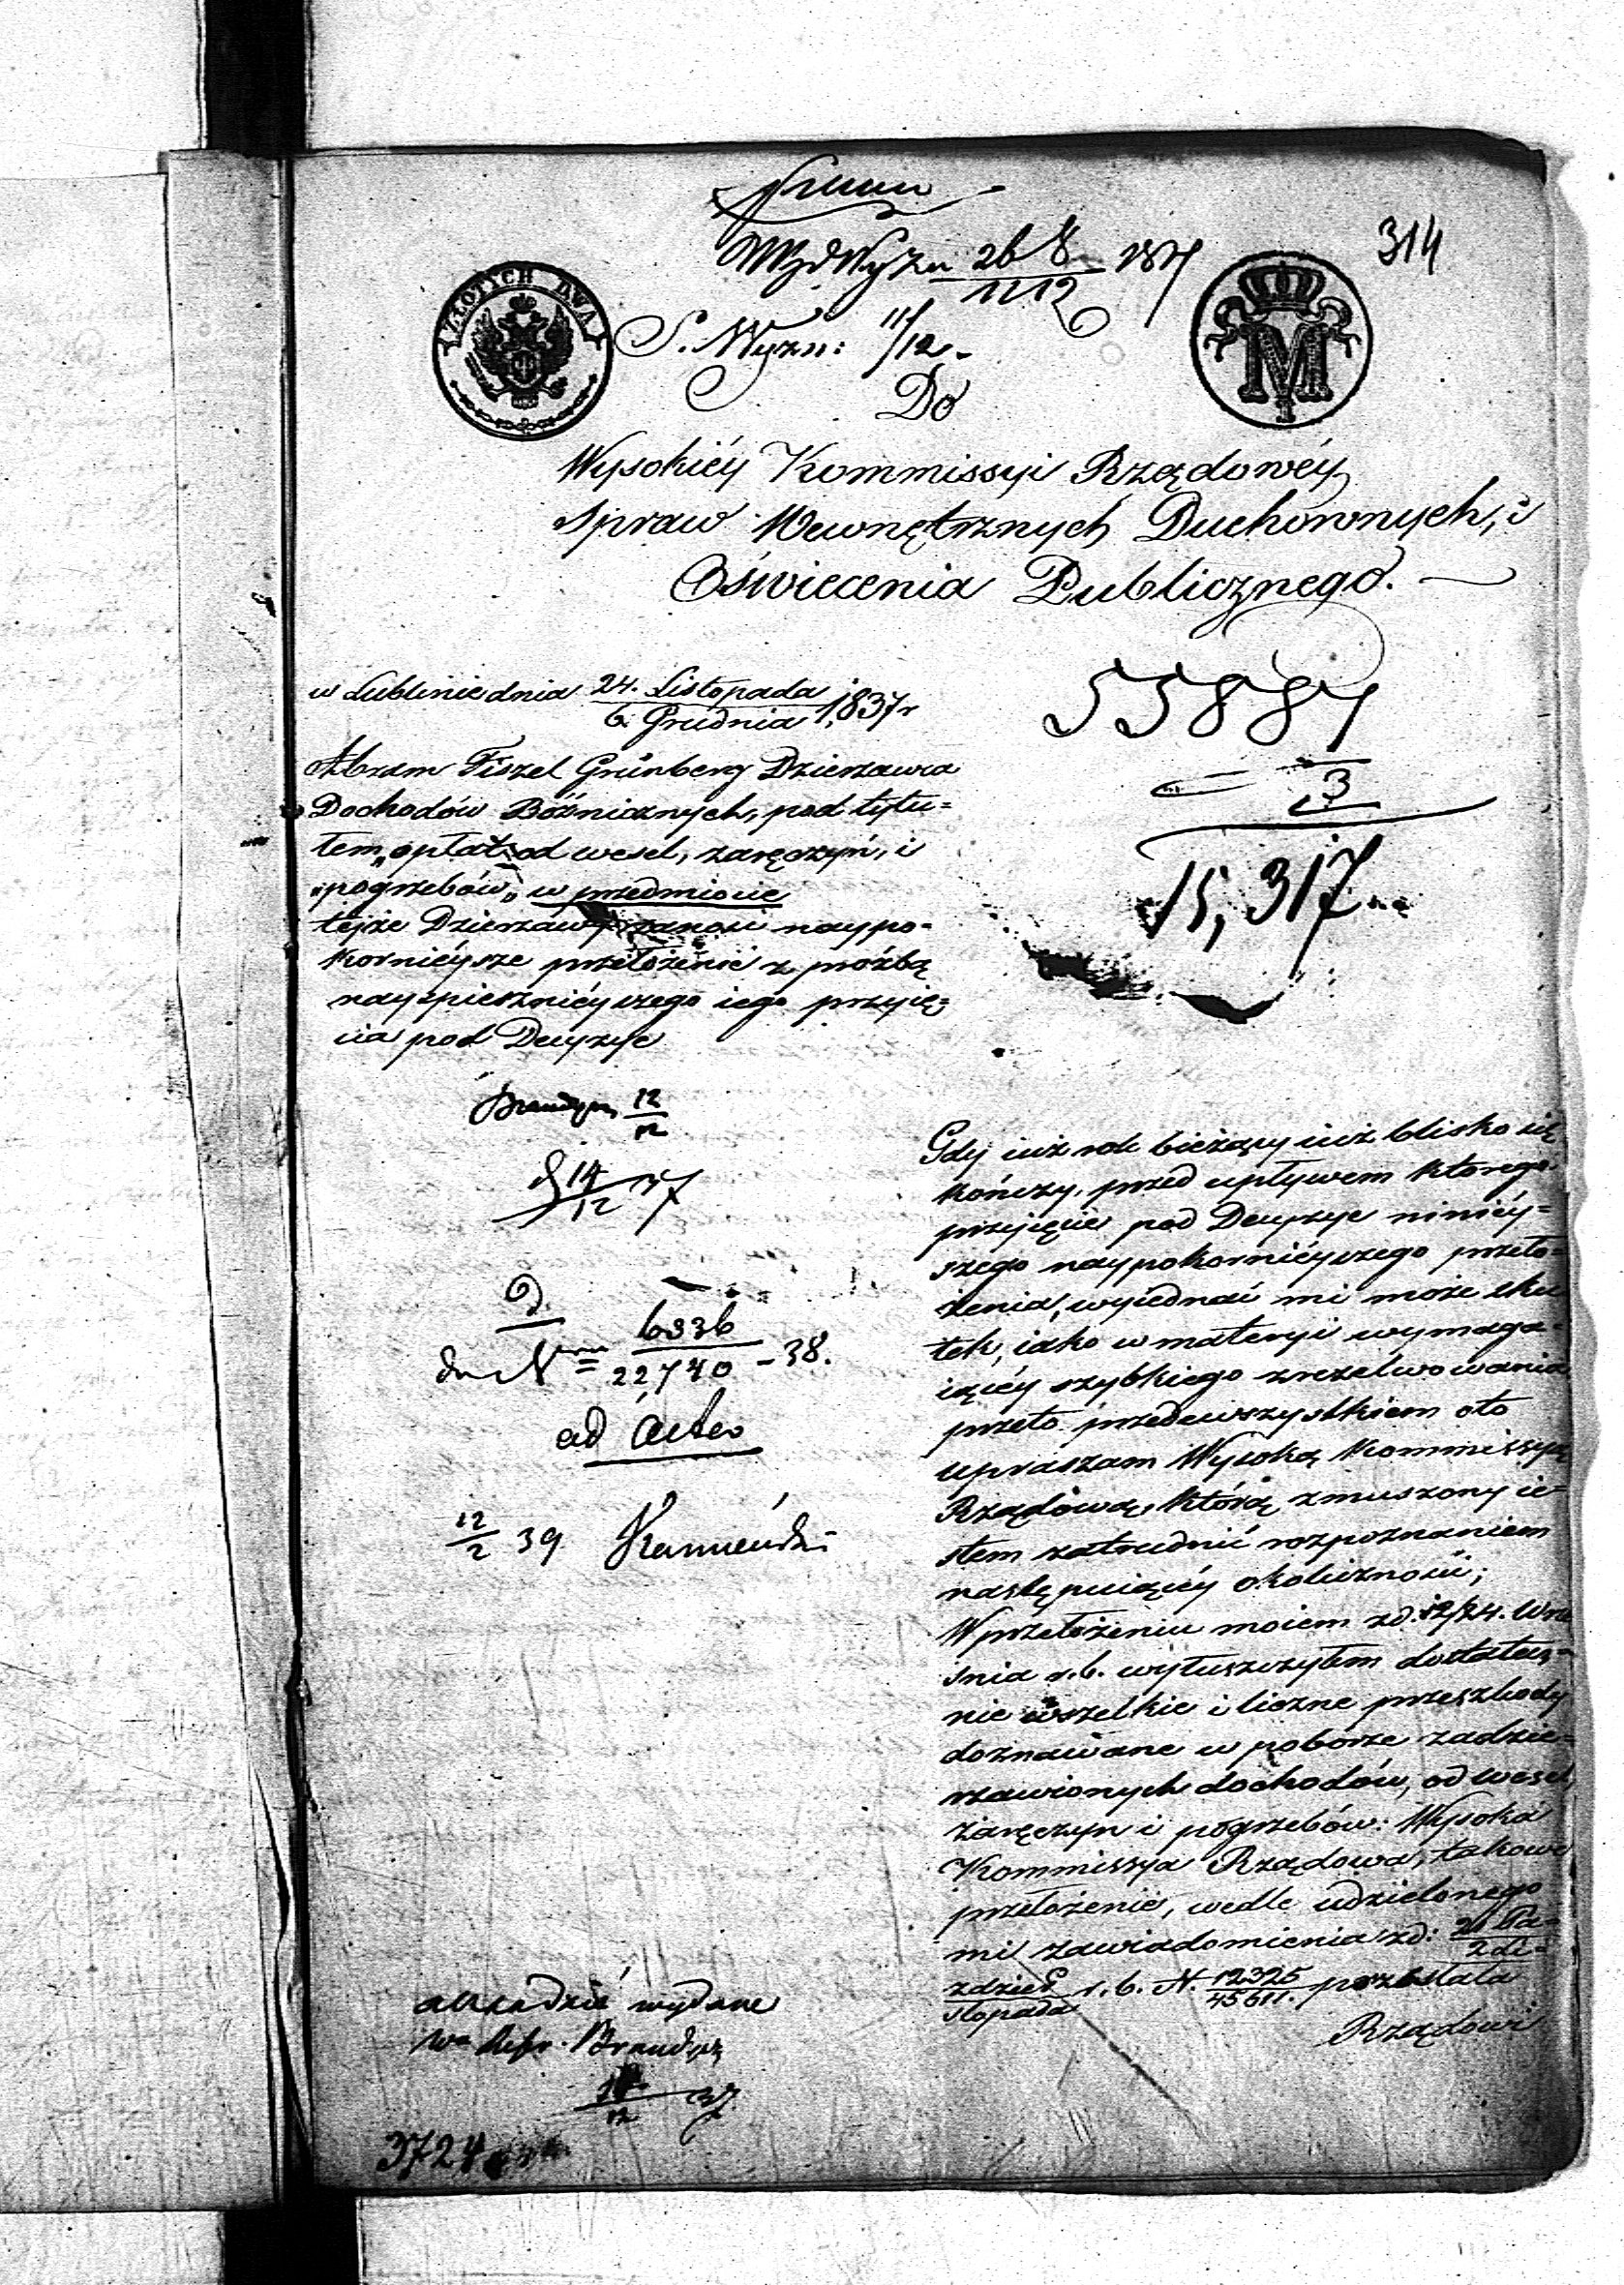 314
WWydWyzn 26 8/11 12 1837
ZŁOTYCH DWA
S. Wyzn: 11/12.
M
Do
Wysokiéy Kommissyi Rządowéy
Spraw Wewnętrznych Duchownych, i
Oświecenia Publicznego.
w Lublinie dnia 24. Listopada / 6. Grudnia 1837 r
55887
3
15,317
Abram Fiszel Grünberg Dzierzawca
Dochodów Bóżnicznych, pod tytu=
łem „opłat od wesel, zaręczyń, i
„pogrzebów„ w przedmiocie
téjże Dzierzawy zanosi naypo=
korniéysze przełożenié z proźbą
nayspieszniéyszego iego przyię=
cia pod Decyzye
12/12
14/12 37
6336/22740 - 38.
ad acta
12/2 39 Kamieński
Gdy iuż rok bieżący iuż blisko się
kończy, przed upływem którego
przyjęcie pod Decyzye niniéy=
szego naypokorniéyszego przeło=
żenia, wyiednać mi może sku
tek, iako w materyi wymaga=
iącéy szybkiego zrezolwowania
przeto przedewszystkiem oto
upraszam Wysoką Kommissyą
Rządową, którą zmuszony ie=
stem zatrudnić rozpoznaniem
następuiącéy okoliczności;
W przełożeniu moiem z d. 12/24. Wrze
śnia r. b. wyłuszczyłem dostatecz=
nie wszelkie i liczne przeszkody
doznawane w poborze zadzie=
rzawionych dochodów, od wesel,
zaręczyn i pogrzebów: Wysoka
Kommissya Rządowa, takowe
przełożenié, wedle udzielonego
mi zawiadomienia z d: 21 Pa=
zdzier / 2 Li=
stopada r. b. N. 12325/45611. przesłała
Rządowi
wydane
37
3724